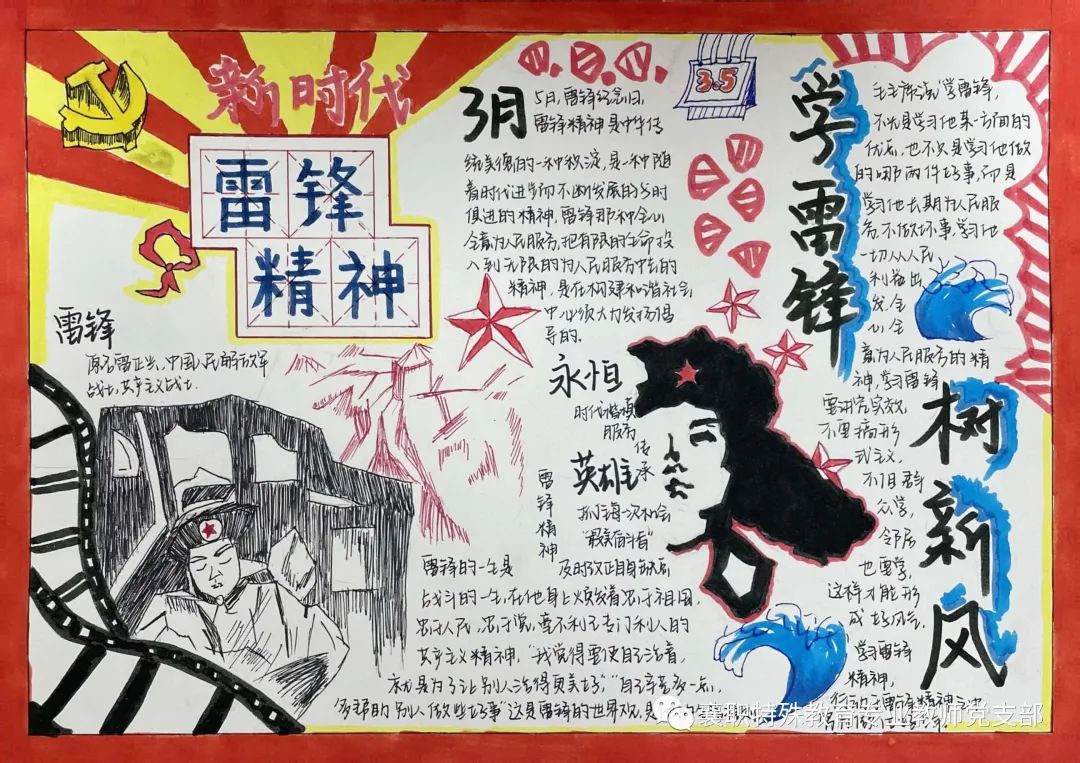 新时代
雷锋
精神
3.5
3月
5日,雷锋纪念日,
雷锋精神是中华传
统美德的一种积淀,是一种随
着时代进步而不断发展的与时
俱进的精神,雷锋那种全心
全意为人民服务,把有限的生命投
入到无限的为人民服务中去的
精神,是在构建和谐社会
中必须大力发扬倡
导的.
雷锋
原名雷正兴,中国人民解放军
战士,共产主义战士.
永恒
时代楷模
服务
传承
英雄
雷锋精神
抓住每一次机会
"最美奋斗者"
及时改正自身缺点
雷锋的一生是
战斗的一生,在他身上焕发着忠于祖国,
忠于人民,忠于党,毫不利己专门利人的
共产主义精神,"我觉得要使自己活着,
就是为了让别人活得更美好;""自己辛苦多一点,
多帮助别人做些好事"这是雷锋的世界观,是
学雷锋
树新风
毛主席说"学雷锋,
不光是学习他某一方面的
优点,也不只是学习他做
的哪两件好事,而是
学习他长期为人民服
务,不做坏事,学习他
一切从人民
利益出
发,全
心全
意为人民服务的精
神,学习雷锋
要讲究实效,
不要搞形
式主义,
不但群
众学,
邻居
也要学,
这样才能形
成好风气,
学习雷锋
精神,
襄职特殊教育专业教师党支部